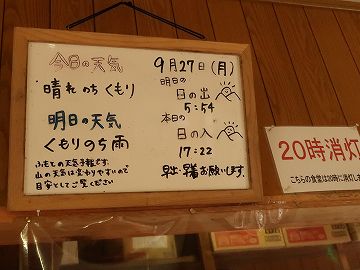 今日の天気
晴れ のち くもり
明日の天気
くもりのち雨
ふもとの天気予報です。
山の天気は変わりやすいので
目安としてご覧ください
9月27日(月)
明日の
日の出
5:54
本日の
日の入
17:22
早出・早着お願いします。
20時消灯
こちらの食堂は20時に消灯しま